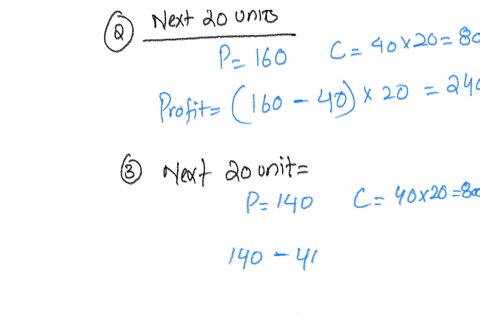 ② Next 20 units
P= 160 C= 40×20=80
Profit= (160 - 40) × 20 = 240
③ Next 20 unit=
P= 140 C= 40×20=800
140 - 4